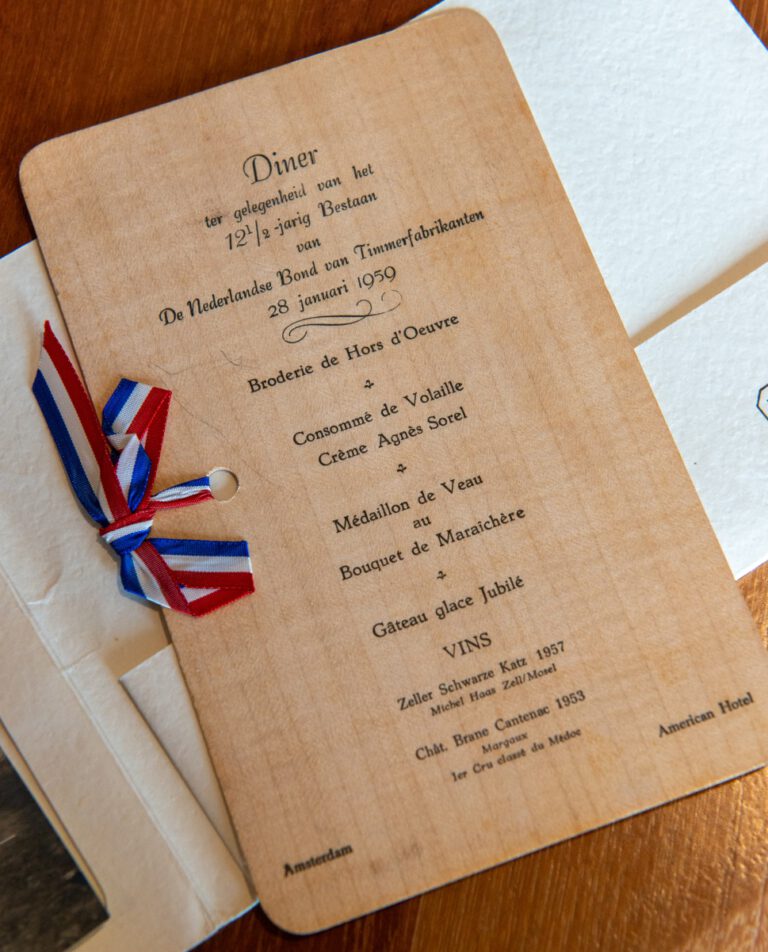 Diner
ter gelegenheid van het
12 1/2 -jarig Bestaan
van
De Nederlandse Bond van Timmerfabrikanten
28 januari 1959
Broderie de Hors d'Oeuvre
Consommé de Volaille
Crème Agnès Sorel
Médaillon de Veau
au
Bouquet de Maraichère
Gâteau glace Jubilé
VINS
Zeller Schwarze Katz 1957
Michel Haas Zell/Mosel
Chât. Brane Cantenac 1953
Margaux
1er Cru classé du Médoc
American Hotel
Amsterdam